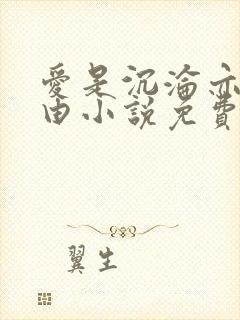 愛是沉淪亦
由小說免費
翼生